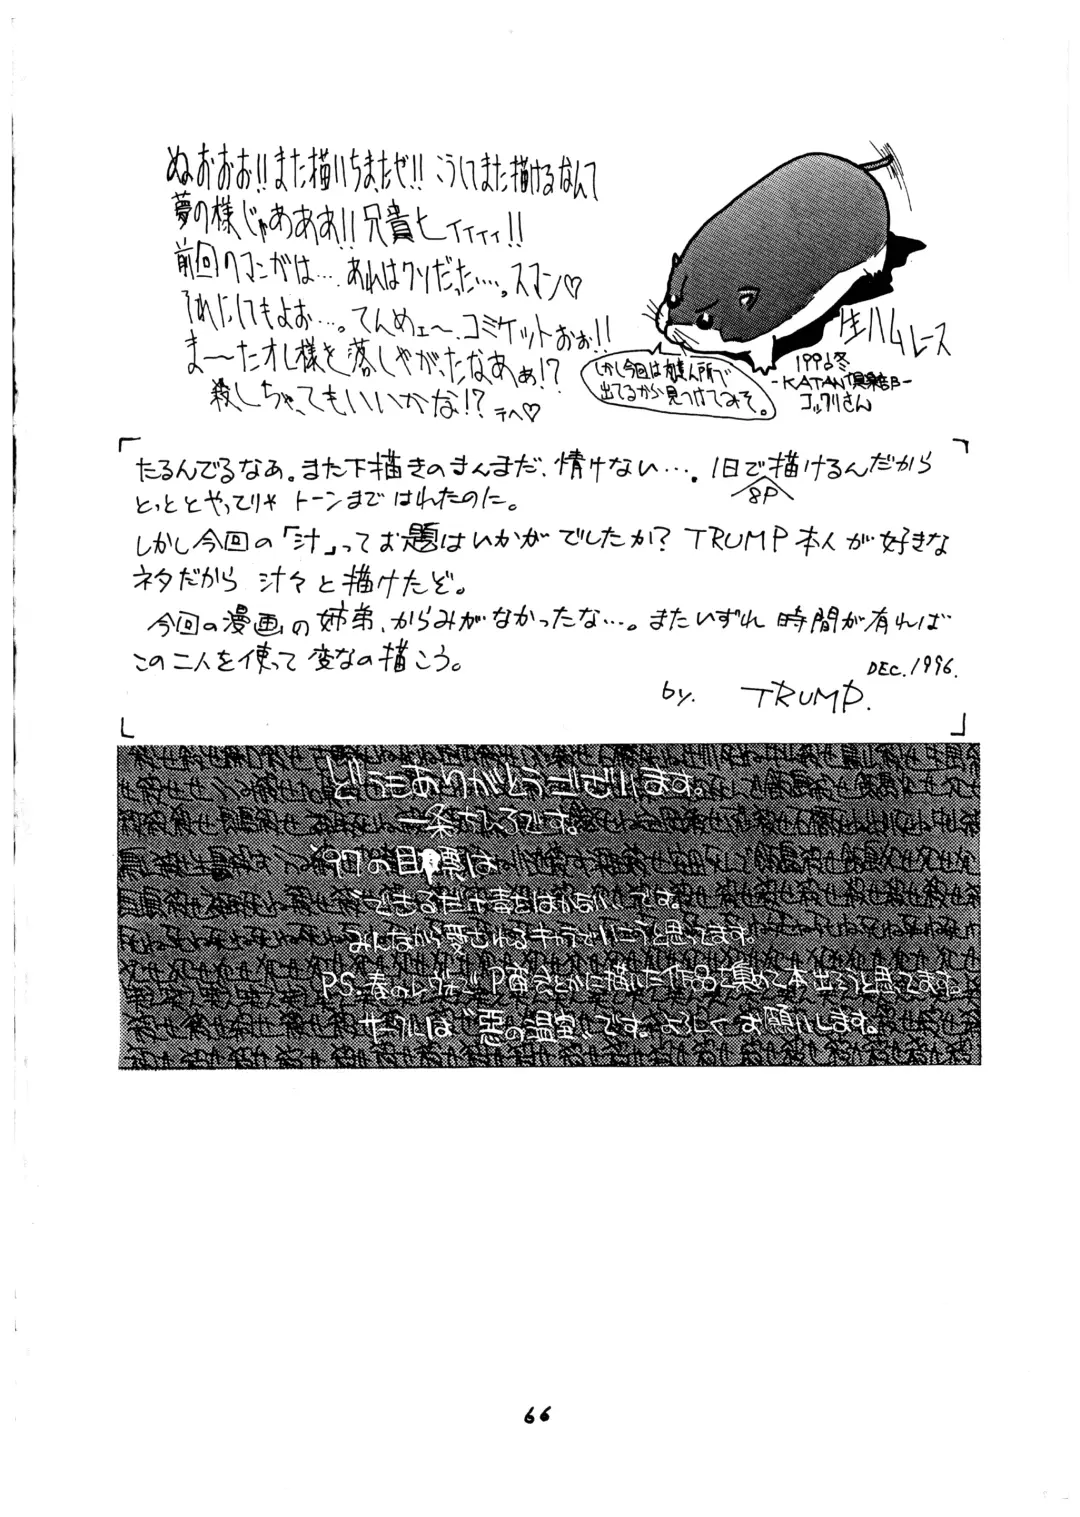 ぬおおお!!また描いちまたぜ!!こうしてまた描けるなんて
夢の様じゃあああ!!兄貴ヒィィィィ!!
前回のマンガは…、あれはクソだった…。スマン♡
それにしてもよお…。てんめェ〜、コミケットおぉ!!
ま〜たオレ様を落しやがったなあぁ!?
殺しちゃってもいいかな!?テヘ♡
しかし今回は
出てるから見つけてみそ。
生ハムレース
1996冬
-KATAN倶楽部-
コックリさん
たるんでるなあ。また下描きのまんまだ、情けない…。1日で描けるんだから
8P
とっととやってりゃトーンまではれたのに。
しかし今回の「汁」ってお題はいかがでしたか?TRUMP本人が好きな
ネタだから汁々と描けたぞ。
今回の漫画の姉弟、からみがなかったな…。またいずれ時間が有れば
この二人を使って変なの描こう。
DEC.1996.
by. TRUMP.
どうもありがとうございます。
一条ちひろです。
'97の目標は
"できるだけ毒をはかない"です。
みんなから愛されるキャラでいこうと思ってます。
P.S.春のレヴォで
とかに描いた作品を集めて本出そうと思ってます。
サークルは"悪の温室"です。よろしくお願いします。
66